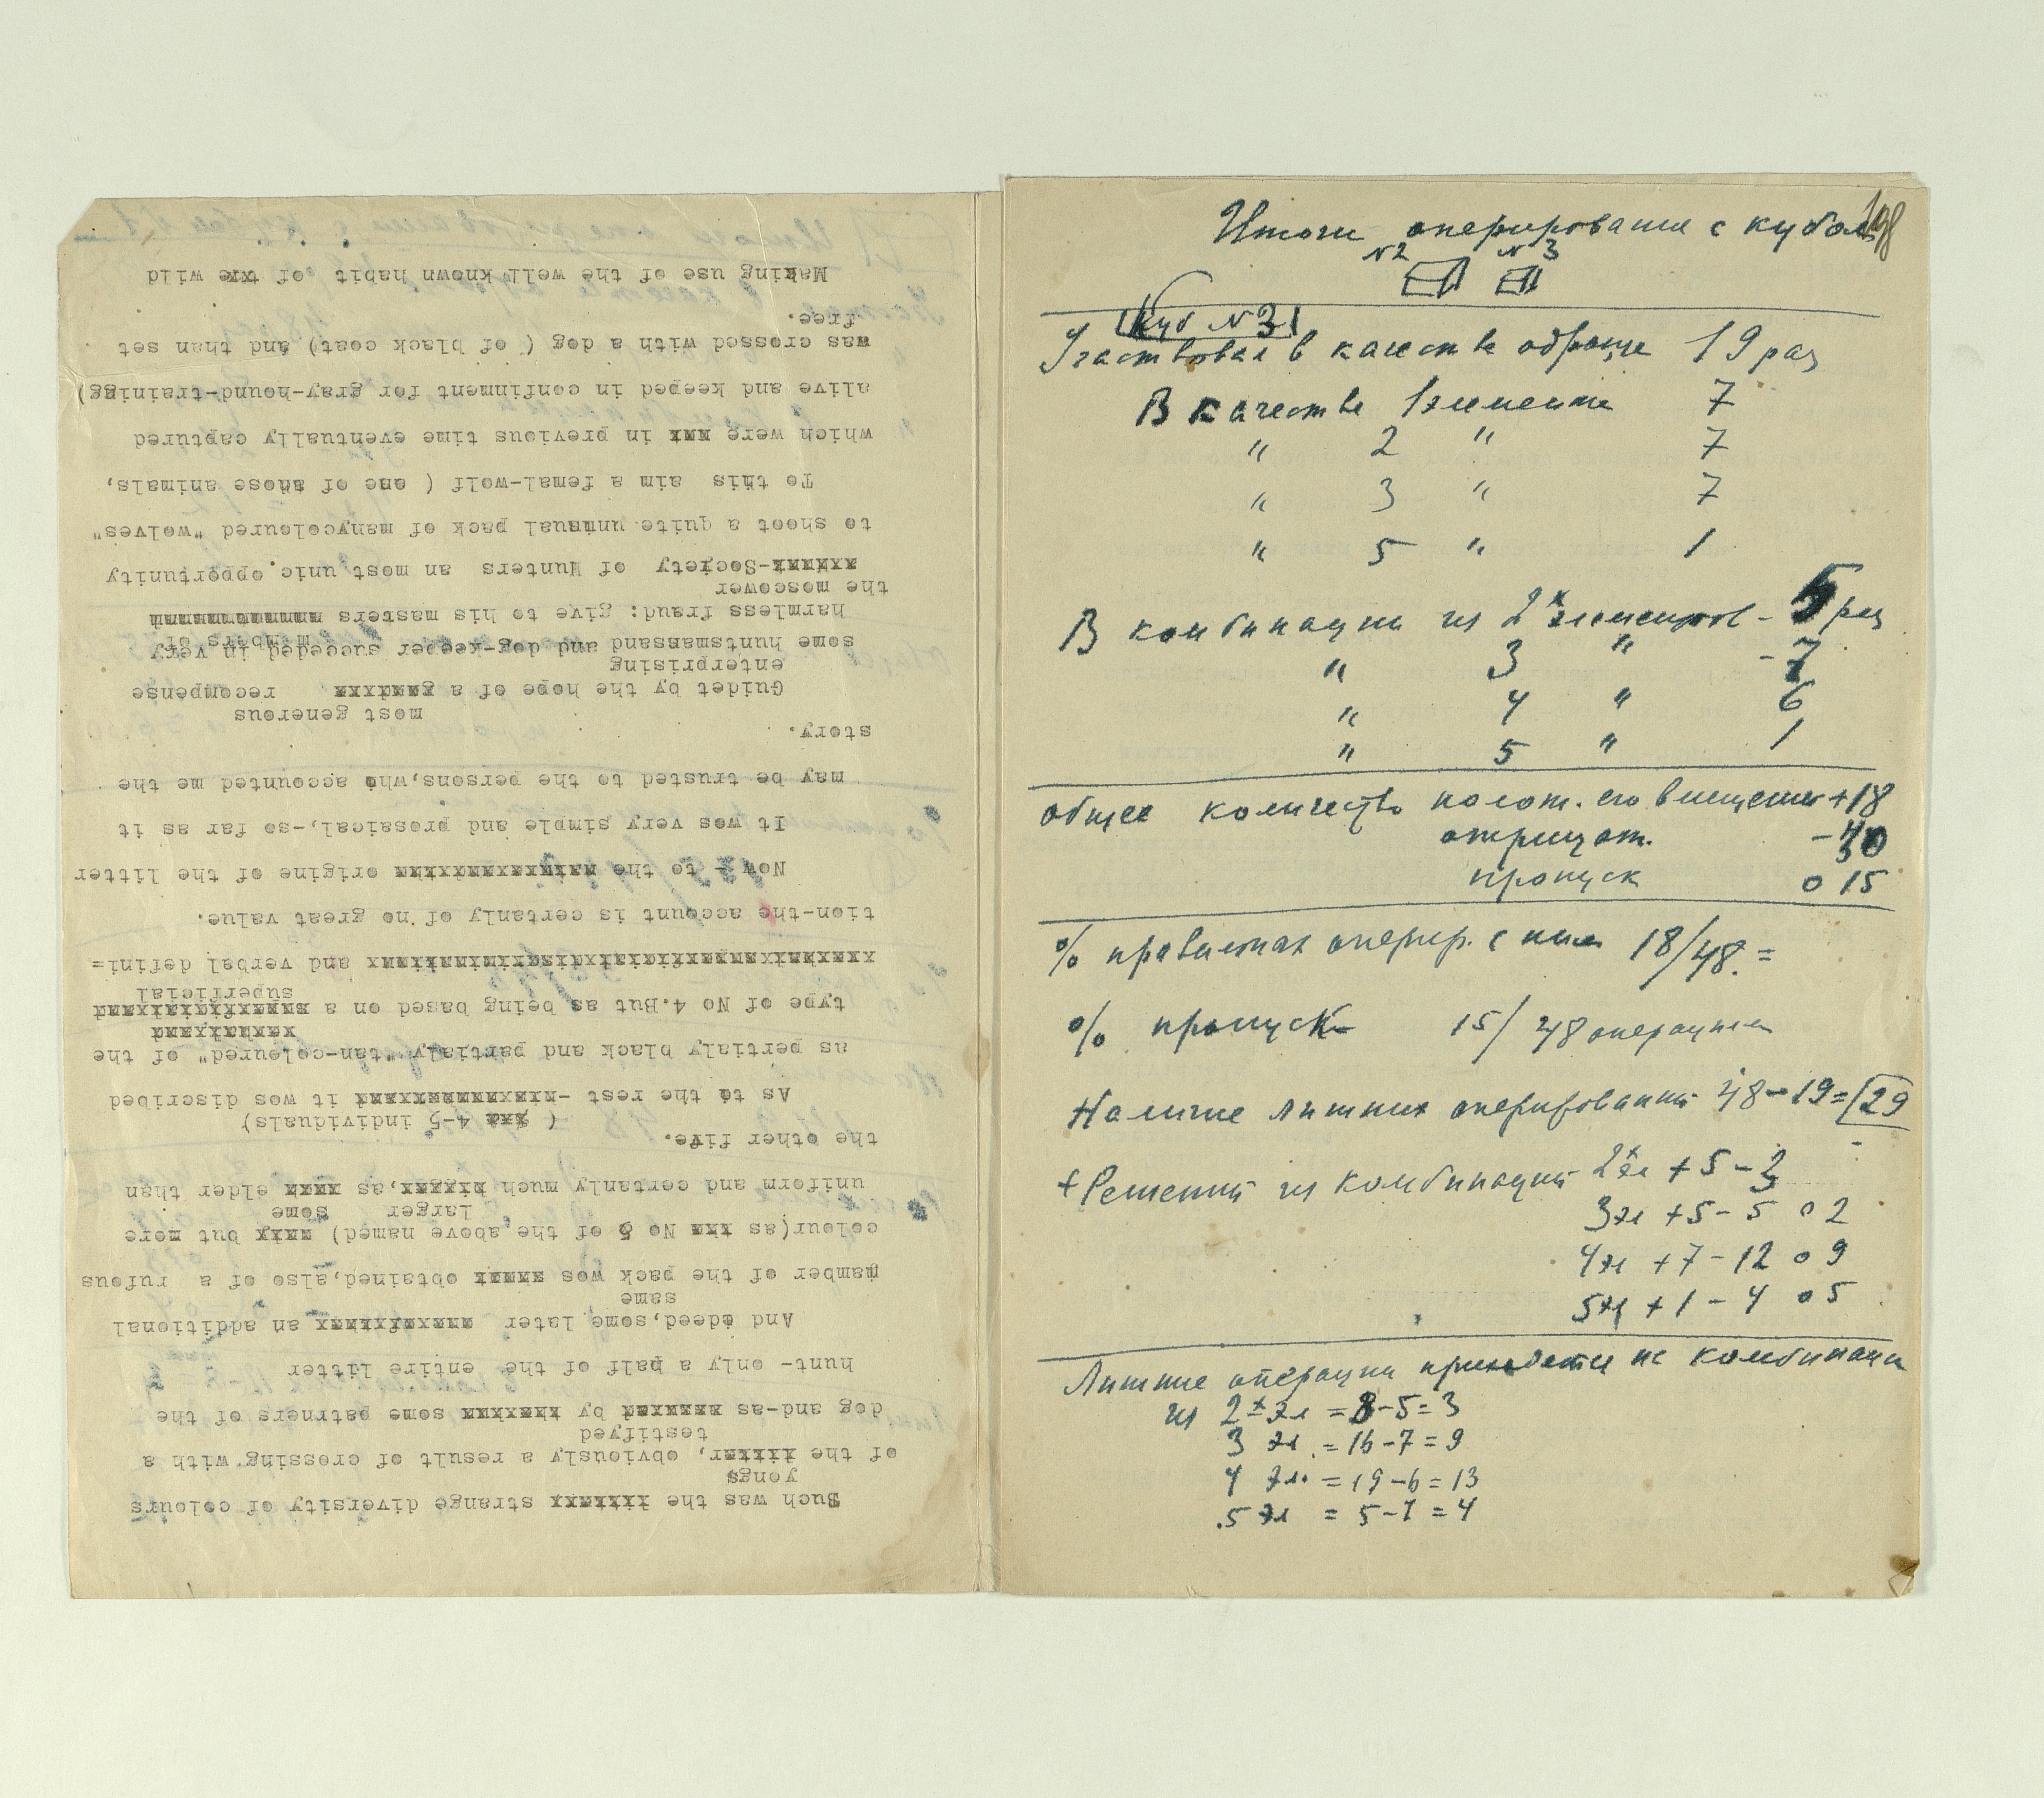 Such was the strange diversity of colours
yongs
of the litter, obviously a result of crossing with a
testifyed
dog and-as by some patrners of the
hunt- only a half of the entire litter
And ideed,some later an additional
same
mamber of the pack wos obtained,also of a rufous
colour(as No 5 of the above named) but more
larger some
uniform and certanly much as elder than
the other five. ( 4-5 individuals)
As to the rest - it wos discribed
as pertialy black and partialy "tan-coloured" of the
type of No 4.But as being based on a
superficial
and verbal defini=
tion-the account is certanly of no great value.
Now - to the origine of the litter
It wos very simple and prosaical,-so far as it
may be trusted to the persons,who accounted me the
story.
most generous
Guidet by the hope of a recompense
enterprising
some huntsmansand dog-keeper succeded in very
members of
harmless fraud: give to his masters
the moscower
-Society of Hunters an most unic opportunity
to shoot a quite unusual pack of manycoloured "wolves"
To this aim a femal-wolf ( one of those animals,
which were in previous time eventually captured
alive and keeped in confinment for gray-hound-training)
was crossed with a dog ( of black coat) and than set
free.
Making use of the well known habit of the wild
198
Итоги оперирования с кубом
N2 N3
Куб N 3
Участвовал в качестве образца 19 раз
В качестве 1 элемента 7
" 2 " 7
" 3 " 7
" 5 " 1
В комбинации из 2х элементов - 5 раз
" 3 " - 7
" 4 " 6
" 5 " 1
общее количество полож. его вмещений +18
отрицат. - 30
пропуск 0 15
% правильных оперир. с ним 18/48 =
% пропуск 15/48 операций
Наличие лишних оперирований 48-19=29
+ Решений из комбинаций 2х эл +5-3
3 эл +5-5 0 2
4 эл +7-12 0 9
5 эл +1-4 0 5
Лишние операции приходятся на комбинации
из 2х эл = 8-5=3
3 эл = 16-7=9
4 эл. = 19-6=13
5 эл = 5-1=4